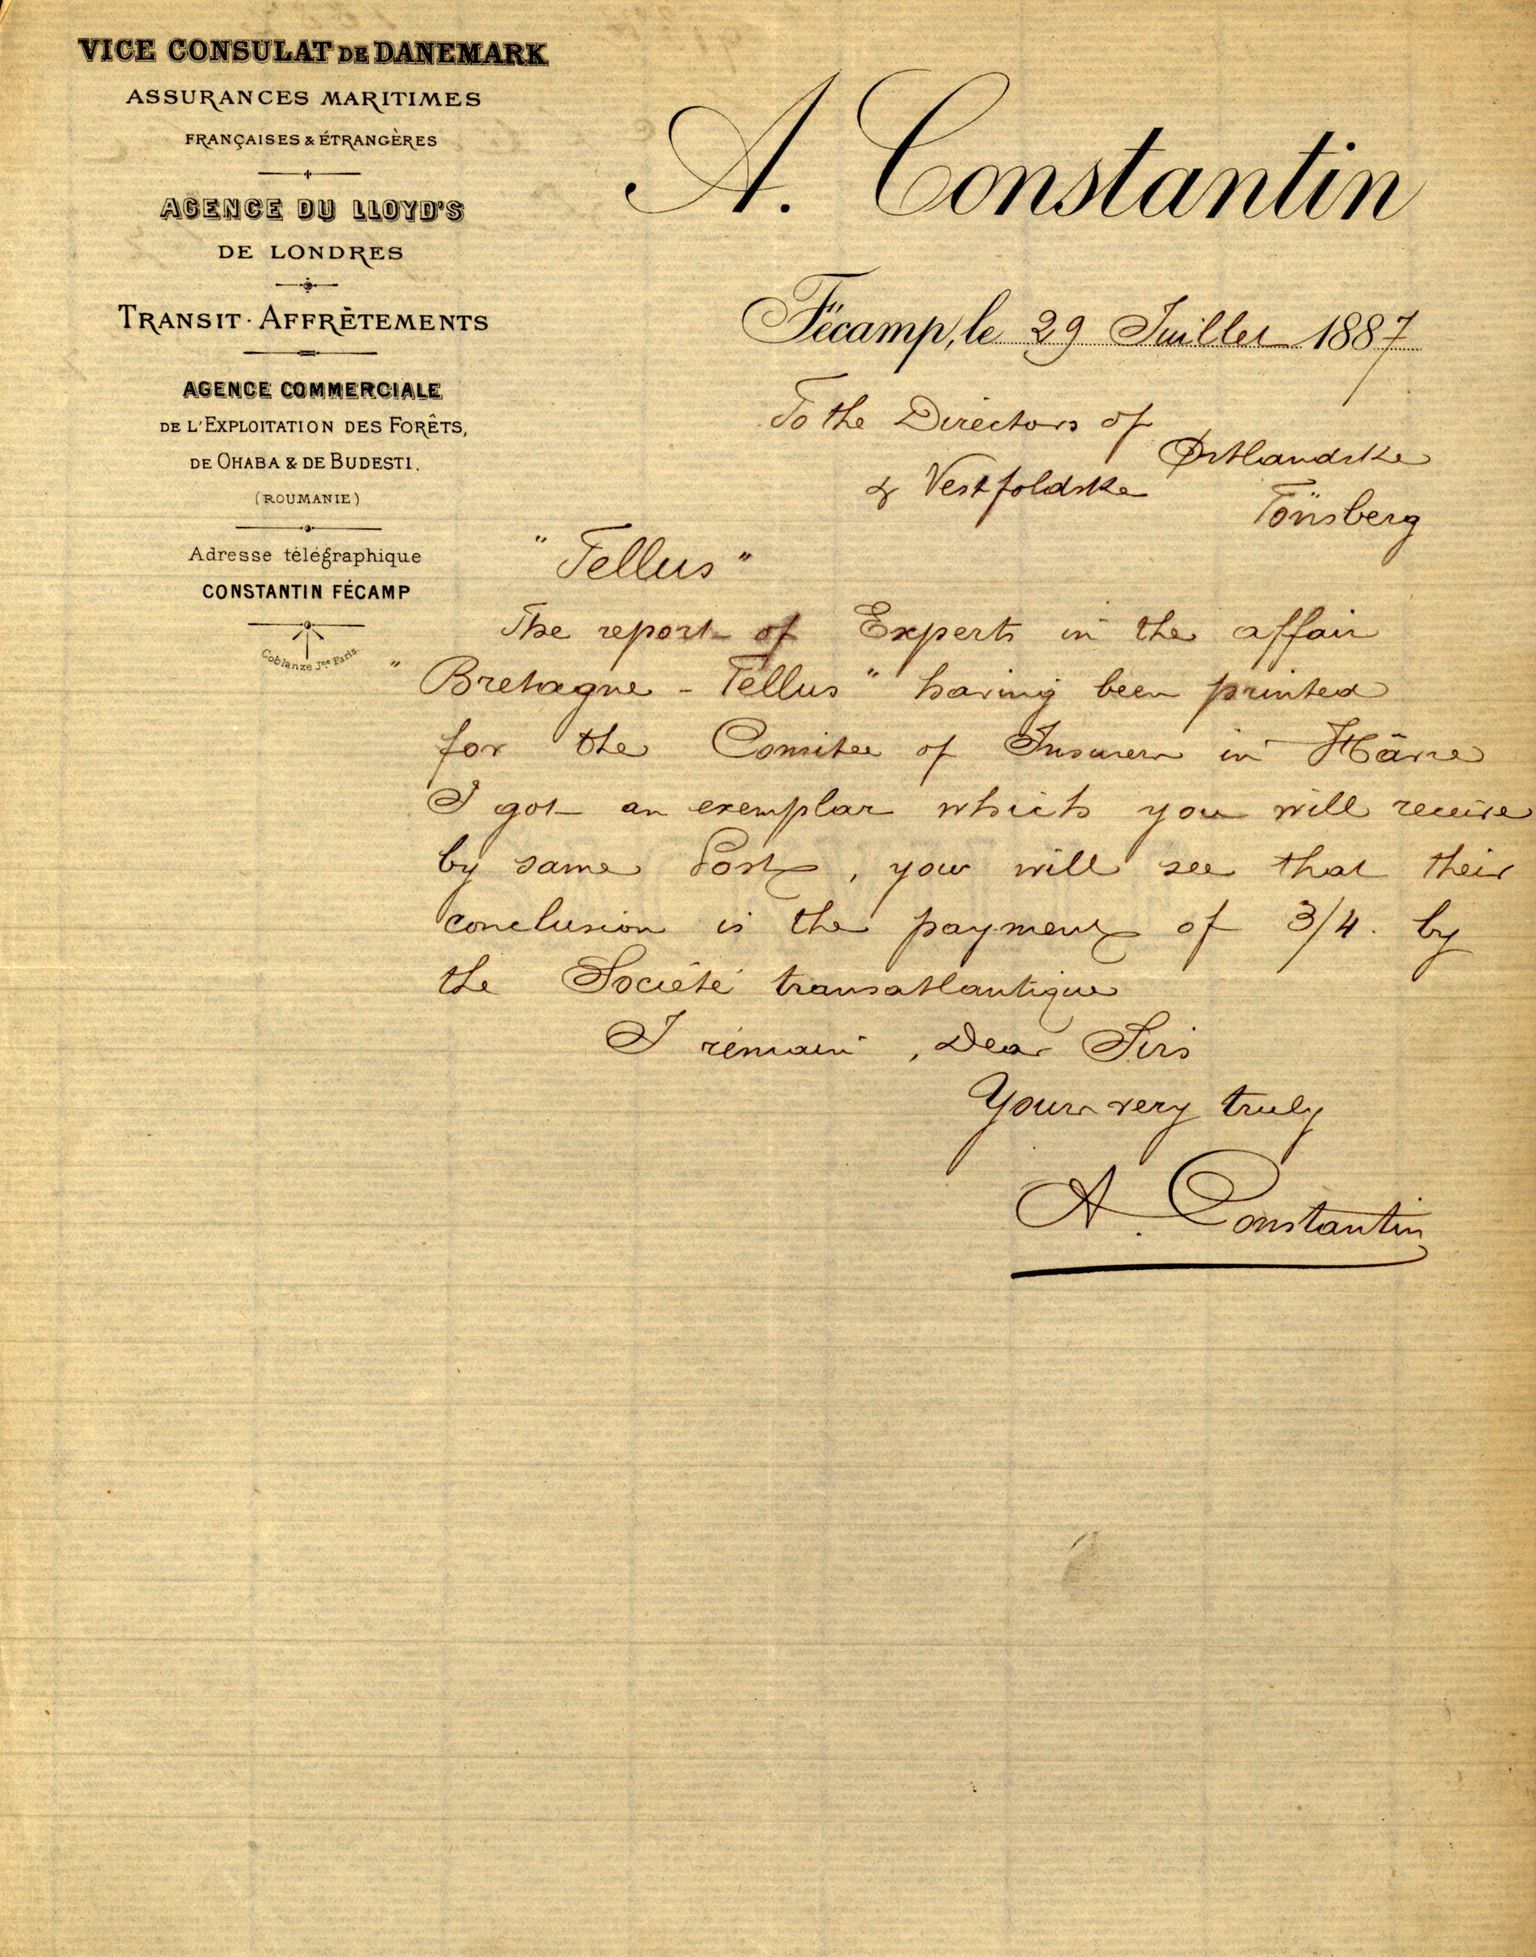 VICE CONSULAT DE DANEMARK
ASSURANCES MARITIMES
FRANÇAISES & ÉTRANGÈRES
AGENCE DU LLOYD'S
DE LONDRES
TRANSIT · AFFRÈTEMENTS
AGENCE COMMERCIALE
DE L'EXPLOITATION DES FORÊTS,
DE OHABA & DE BUDESTI.
(ROUMANIE)
Adresse télégraphique
CONSTANTIN FÉCAMP
Coblanze Jne Paris.
A. Constantin
Fécamp, le 29 Juillet 1887
To the Directors of
Østlandske
& Vestfoldske
Tönsberg
"Tellus"
The report of Experts in the affair
"Bretagne - Tellus" having been printed
for the Comitee of Insurers in Hâvre
I got an exemplar which you will receive
by same Post, you will see that their
conclusion is the payment of 3/4. by
the Société transatlantique
I remain, Dear Sirs
Yours very truly
A. Constantin